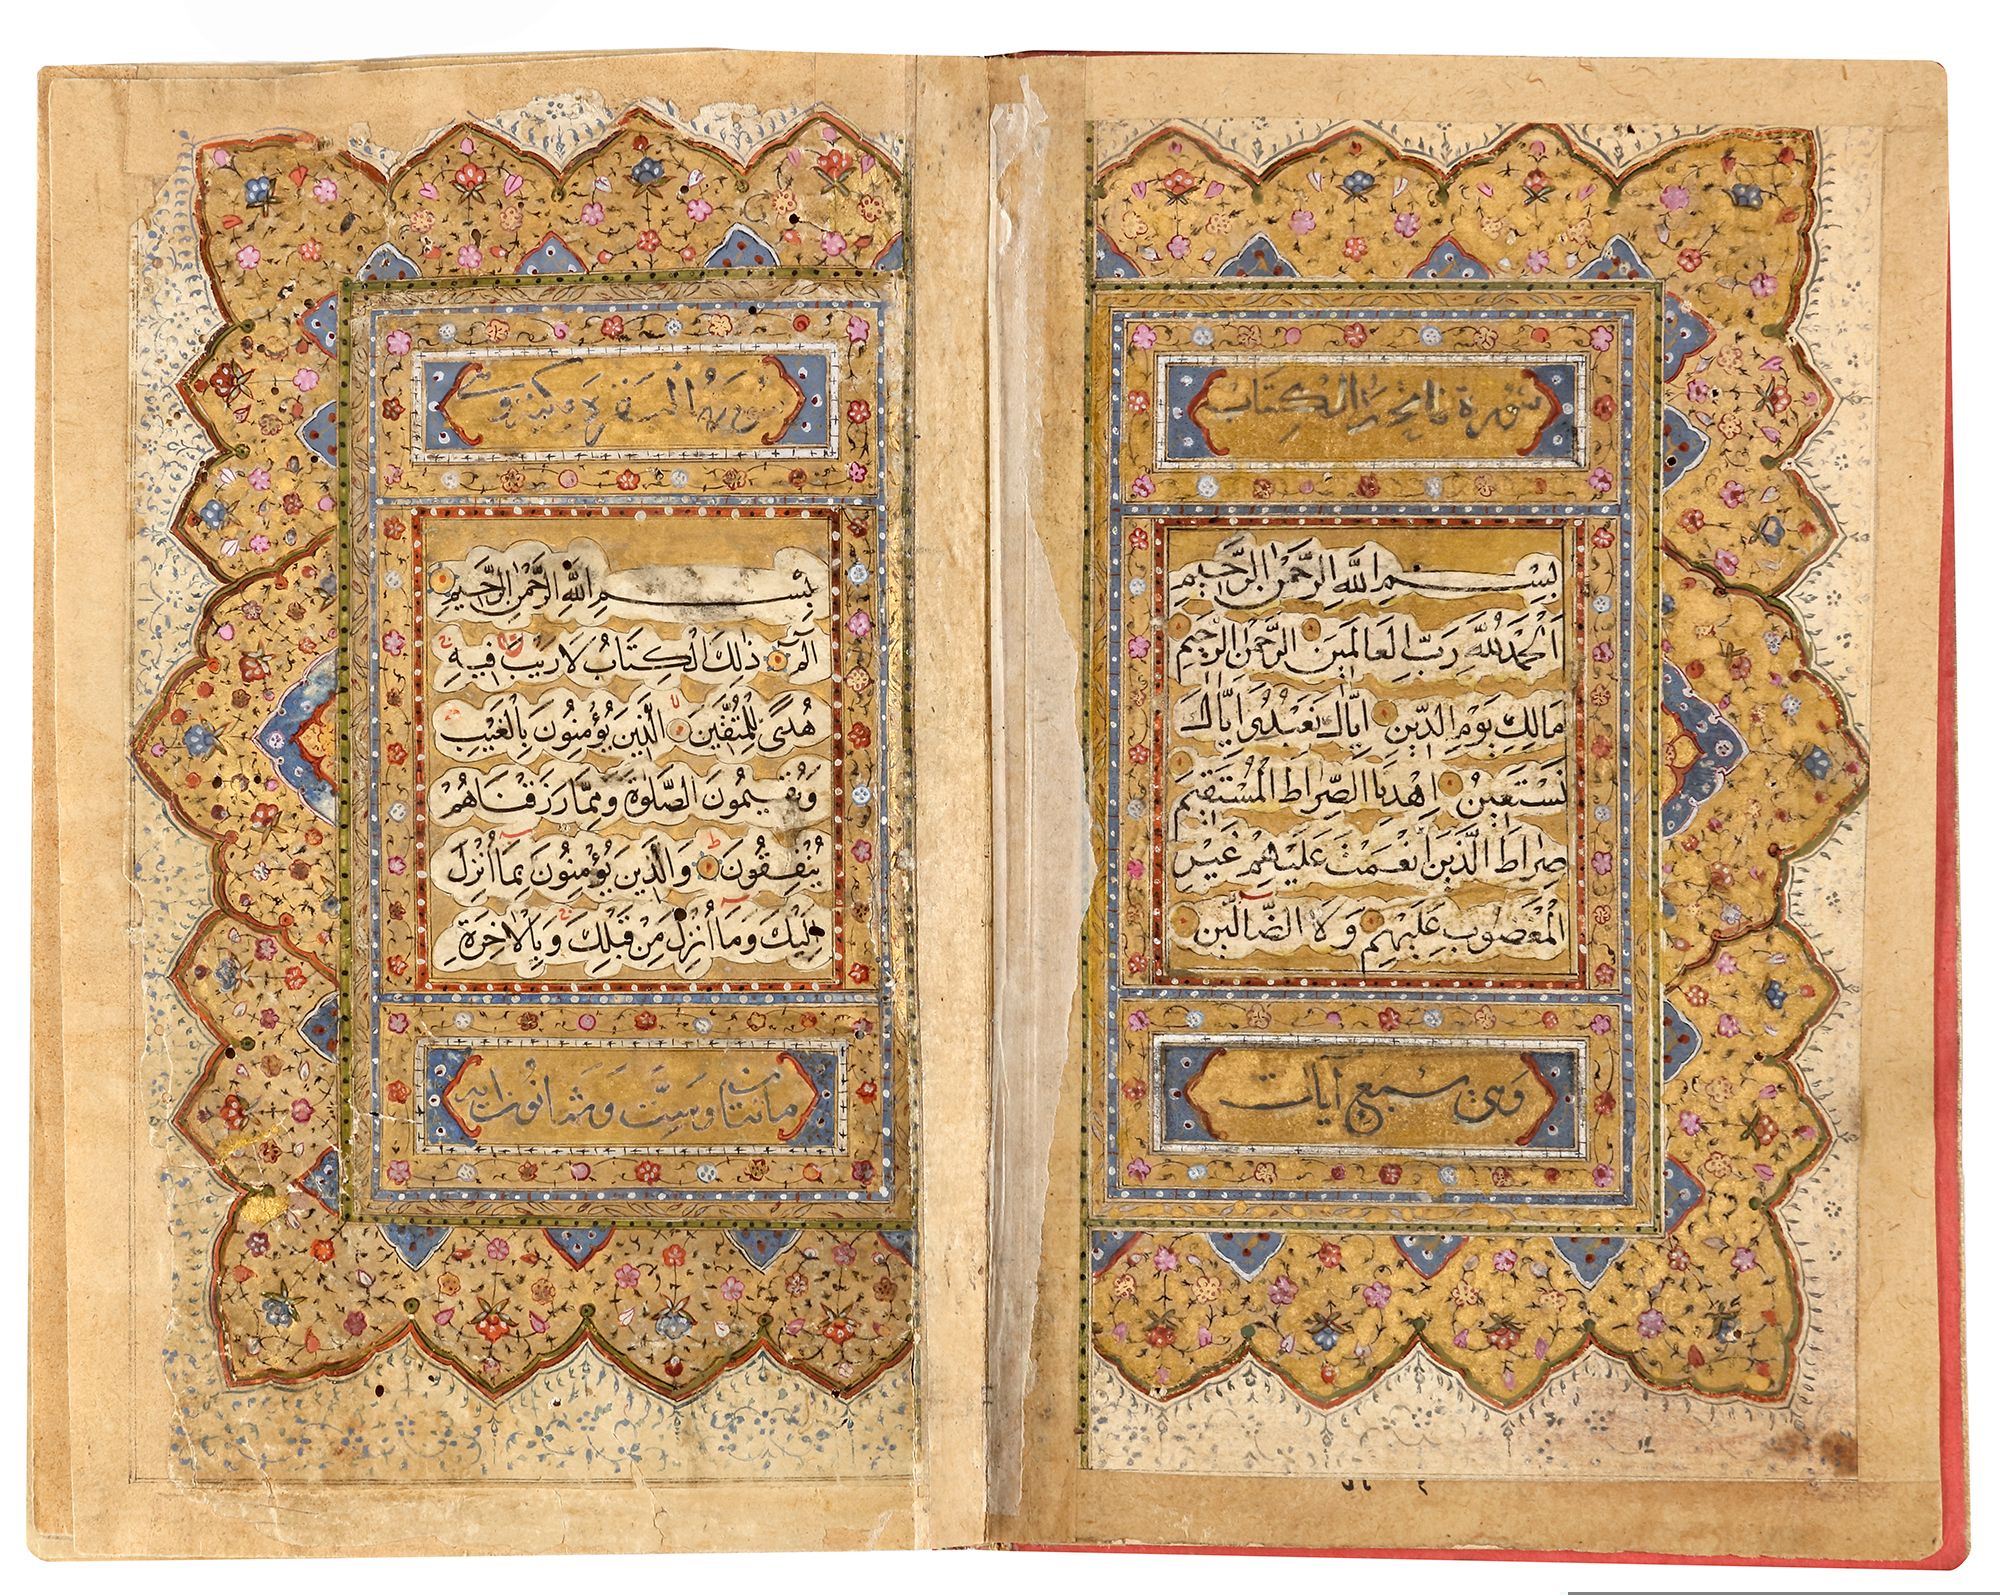 سورة فاتحة الكتاب
بِسْمِ اللّٰهِ الرَّحْمٰنِ الرَّحِيمِ
اَلْحَمْدُ لِلّٰهِ رَبِّ الْعَالَمِينَ الرَّحْمٰنِ الرَّحِيمِ
مَالِكِ يَوْمِ الدِّينِ اِيَّاكَ نَعْبُدُ وَاِيَّاكَ
نَسْتَعِينُ اِهْدِنَا الصِّرَاطَ الْمُسْتَقِيمَ
صِرَاطَ الَّذِينَ اَنْعَمْتَ عَلَيْهِمْ غَيْرِ
الْمَغْضُوبِ عَلَيْهِمْ وَلَا الضَّالِّينَ
وهي سبع آيات
سورة البقرة
بِسْمِ اللّٰهِ الرَّحْمٰنِ الرَّحِيمِ
الٓمٓ ذٰلِكَ الْكِتَابُ لَا رَيْبَ فِيهِ
هُدًى لِلْمُتَّقِينَ الَّذِينَ يُؤْمِنُونَ بِالْغَيْبِ
وَيُقِيمُونَ الصَّلٰوةَ وَمِمَّا رَزَقْنَاهُمْ
يُنْفِقُونَ وَالَّذِينَ يُؤْمِنُونَ بِمَا اُنْزِلَ
اِلَيْكَ وَمَا اُنْزِلَ مِنْ قَبْلِكَ وَبِالْاٰخِرَةِ
مائتان وست وثمانون آية